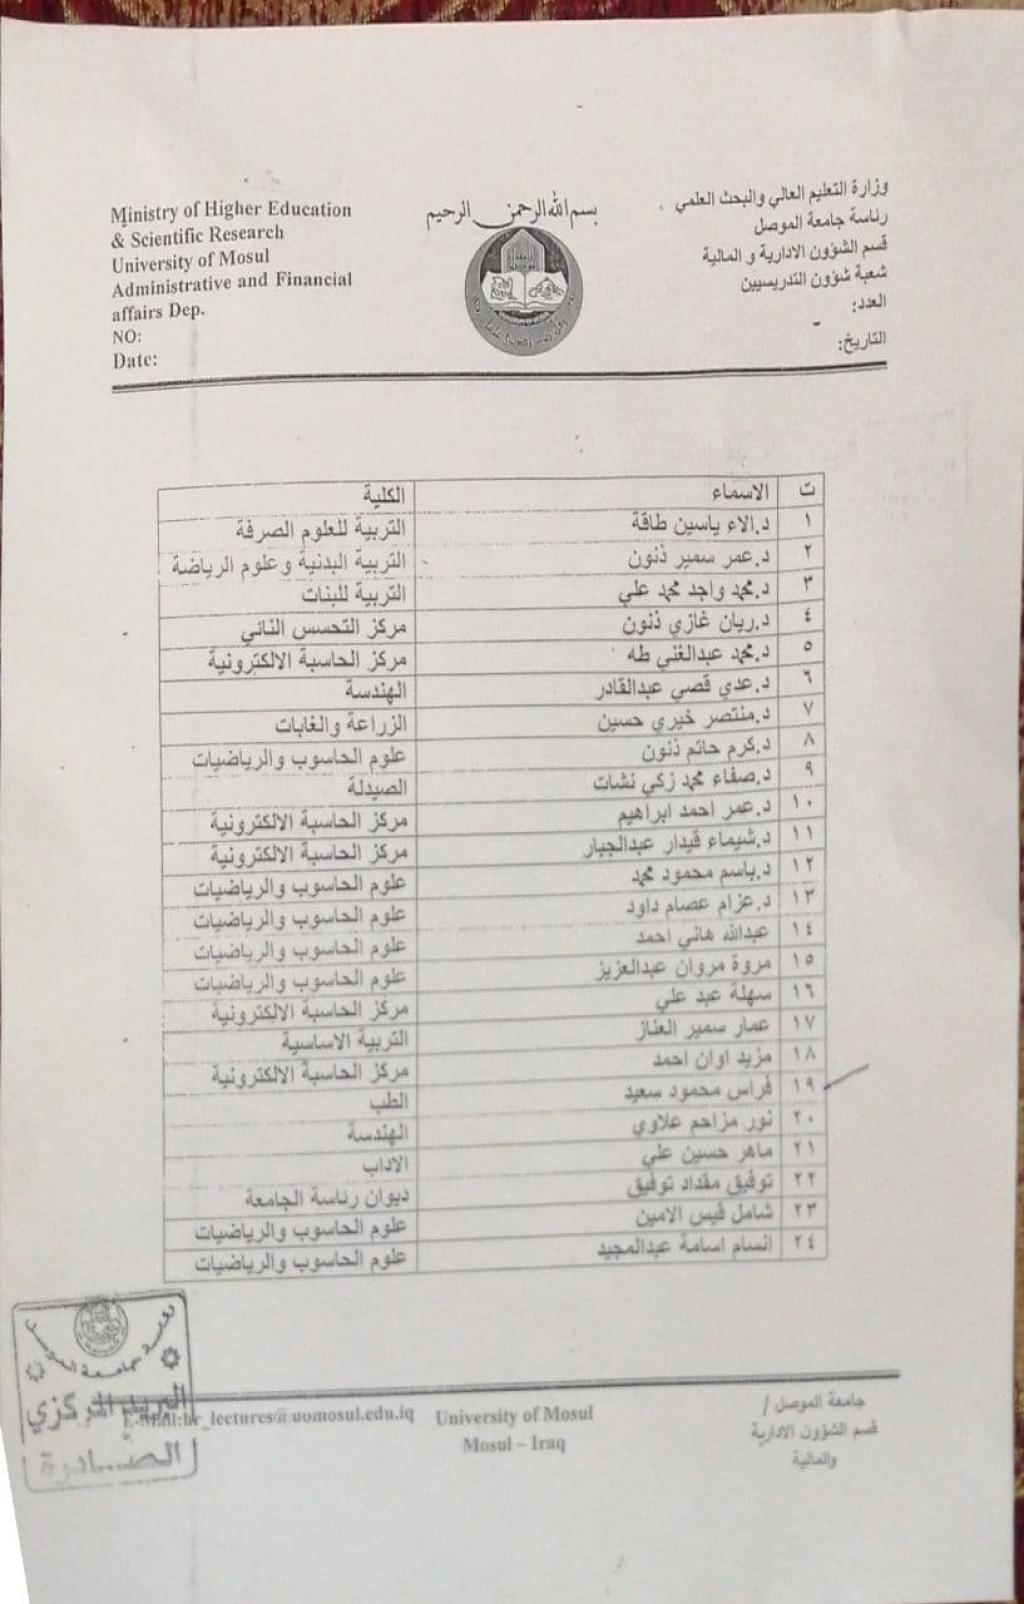 وزارة التعليم العالي والبحث العلمي
رئاسة جامعة الموصل
قسم الشؤون الادارية و المالية
شعبة شؤون التدريسيين
العدد:
التاريخ:
بسم الله الرحمن الرحيم
Ministry of Higher Education
& Scientific Research
University of Mosul
Administrative and Financial
affairs Dep.
NO:
Date:
ت الاسماء الكلية
١ د.الاء ياسين طاقة التربية للعلوم الصرفة
٢ د.عمر سمير ذنون التربية البدنية وعلوم الرياضة
٣ د.محمد واجد محمد علي التربية للبنات
٤ د.ريان غازي ذنون مركز التحسس النائي
٥ د.محمد عبدالغني طه مركز الحاسبة الالكترونية
٦ د.عدي قصي عبدالقادر الهندسة
٧ د.منتصر خيري حسين الزراعة والغابات
٨ د.كرم حاتم ذنون علوم الحاسوب والرياضيات
٩ د.صفاء محمد زكي نشات الصيدلة
١٠ د.عمر احمد ابراهيم مركز الحاسبة الالكترونية
١١ د.شيماء قيدار عبدالجبار مركز الحاسبة الالكترونية
١٢ د.باسم محمود محمد علوم الحاسوب والرياضيات
١٣ د.عزام عصام داود علوم الحاسوب والرياضيات
١٤ عبدالله هاني احمد علوم الحاسوب والرياضيات
١٥ مروة مروان عبدالعزيز علوم الحاسوب والرياضيات
١٦ سهلة عبد علي مركز الحاسبة الالكترونية
١٧ عمار سمير العناز التربية الاساسية
١٨ مزيد اوان احمد مركز الحاسبة الالكترونية
١٩ فراس محمود سعيد الطب
٢٠ نور مزاحم علاوي الهندسة
٢١ ماهر حسين علي الاداب
٢٢ توفيق مقداد توفيق ديوان رئاسة الجامعة
٢٣ شامل قيس الامين علوم الحاسوب والرياضيات
٢٤ انسام اسامة عبدالمجيد علوم الحاسوب والرياضيات
رئاسة جامعة الموصل
البريد المركزي
الصـــادرة
جامعة الموصل /
قسم الشؤون الادارية
والمالية
University of Mosul
Mosul – Iraq
E-Mail:hr_lectures@uomosul.edu.iq